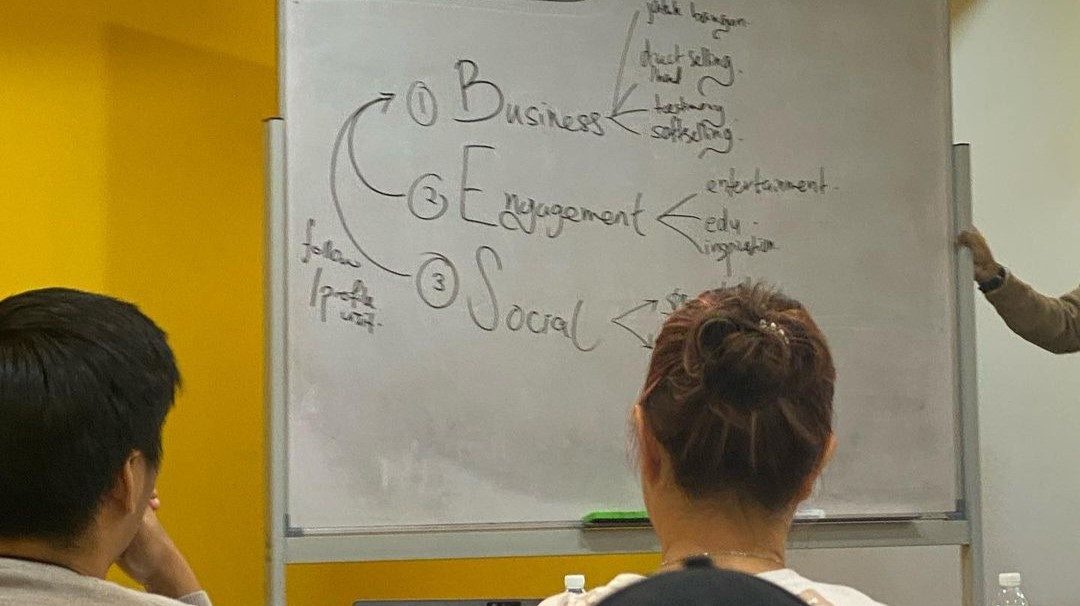 ① Business
direct selling.
hard
testimony
softselling.
② Engagement
entertainment.
edu.
inspiration
③ Social
follow
/profile
visit.